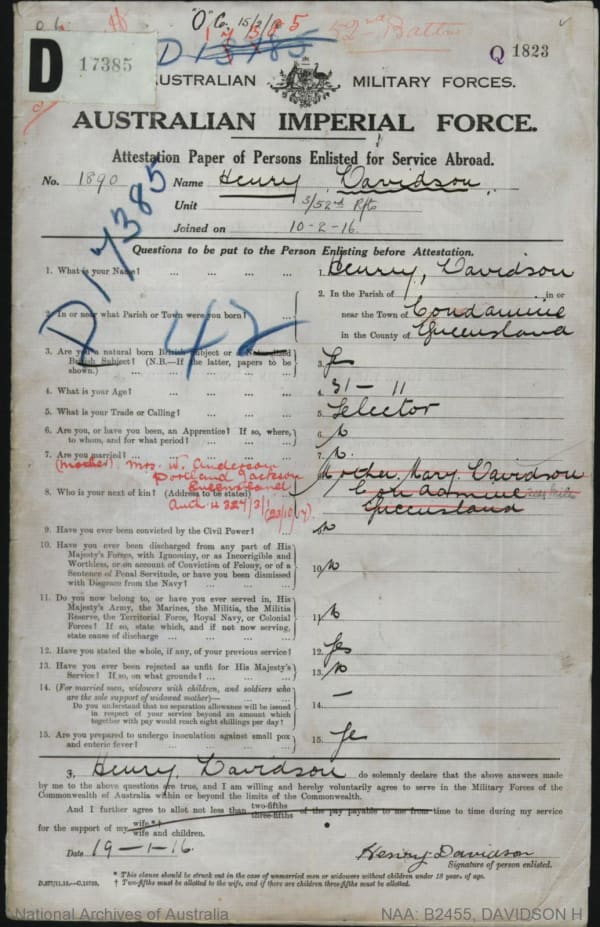 "O" Co. 15/2/16
17385
52nd Battn
D 17385
D
17385
Q 1823
AUSTRALIAN MILITARY FORCES.
AUSTRALIAN IMPERIAL FORCE.
Attestation Paper of Persons Enlisted for Service Abroad.
No. 1890 Name Henry Davidson
Unit 3/52nd Rfts
Joined on 10-2-16.
D17385
42
Questions to be put to the Person Enlisting before Attestation.
1. What is your Name? ... ... ... 1. Henry, Davidson
2. In or near what Parish or Town were you born? ... 2. In the Parish of in or
near the Town of Condamine
in the County of Queensland
3. Are you a natural born British Subject or a Naturalized
British Subject? (N.B.—If the latter, papers to be
shown.) ... ... 3. Yes
4. What is your Age? ... ... ... 4. 31 — 11
5. What is your Trade or Calling? ... ... ... 5. Selector
6. Are you, or have you been, an Apprentice? If so, where,
to whom, and for what period? ... ... 6. No
7. Are you married? ... ... 7. No
(mother) Mrs. W. Anderson
Portland Jackson
Queensland
8. Who is your next of kin? (Address to be stated) 8. Mother. Mary. Davidson
Condamine
Queensland
9. Have you ever been convicted by the Civil Power? ... 9. No
10. Have you ever been discharged from any part of His
Majesty's Forces, with Ignominy, or as Incorrigible and
Worthless, or on account of Conviction of Felony, or of a
Sentence of Penal Servitude, or have you been dismissed
with Disgrace from the Navy? ... ... 10. No
11. Do you now belong to, or have you ever served in, His
Majesty's Army, the Marines, the Militia, the Militia
Reserve, the Territorial Force, Royal Navy, or Colonial
Forces? If so, state which, and if not now serving,
state cause of discharge ... ... ... 11. No
12. Have you stated the whole, if any, of your previous service? 12. Yes
13. Have you ever been rejected as unfit for His Majesty's
Service? If so, on what grounds? ... ... 13. No
14. (For married men, widowers with children, and soldiers who
are the sole support of widowed mother)—
Do you understand that no separation allowance will be issued
in respect of your service beyond an amount which
together with pay would reach eight shillings per day? 14. —
15. Are you prepared to undergo inoculation against small pox
and enteric fever? ... ... ... 15. Yes
I, Henry, Davidson do solemnly declare that the above answers made
by me to the above questions are true, and I am willing and hereby voluntarily agree to serve in the Military Forces of the
Commonwealth of Australia within or beyond the limits of the Commonwealth.
And I further agree to allot not less than two-fifths three-fifths of the pay payable to me from time to time during my service
for the support of my wife*† wife and children.
Date 19-1-16. Henry Davidson
Signature of person enlisted.
* This clause should be struck out in the case of unmarried men or widowers without children under 18 years of age.
† Two-fifths must be allotted to the wife, and if there are children three-fifths must be allotted.
National Archives of Australia
NAA: B2455, DAVIDSON H